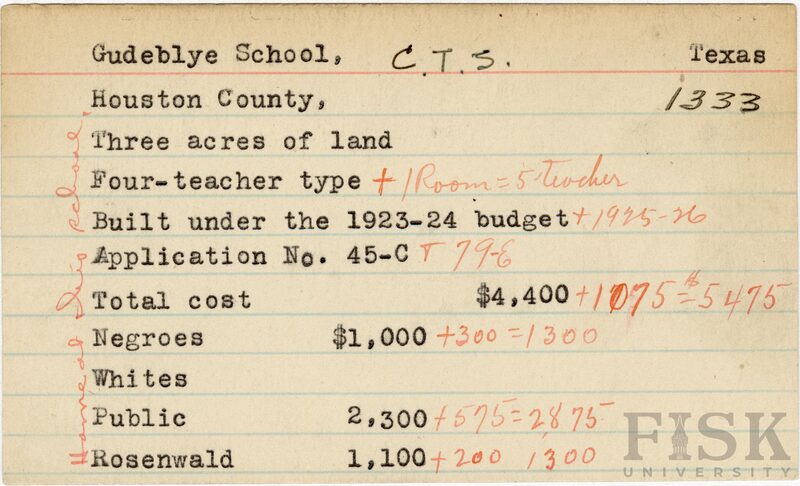 Gudeblye School, C.T.S. Texas
Houston County, 1333
Three acres of land
Four-teacher type + 1 Room = 5 teacher
Built under the 1923-24 budget + 1925-26
Application No. 45-C + 79-E
Total cost $4,400 + 1075 = $5475
Negroes $1,000 + 300 = 1300
Whites
Public 2,300 + 575 = 2875
Rosenwald 1,100 + 200 1300
school
FISK
UNIVERSITY